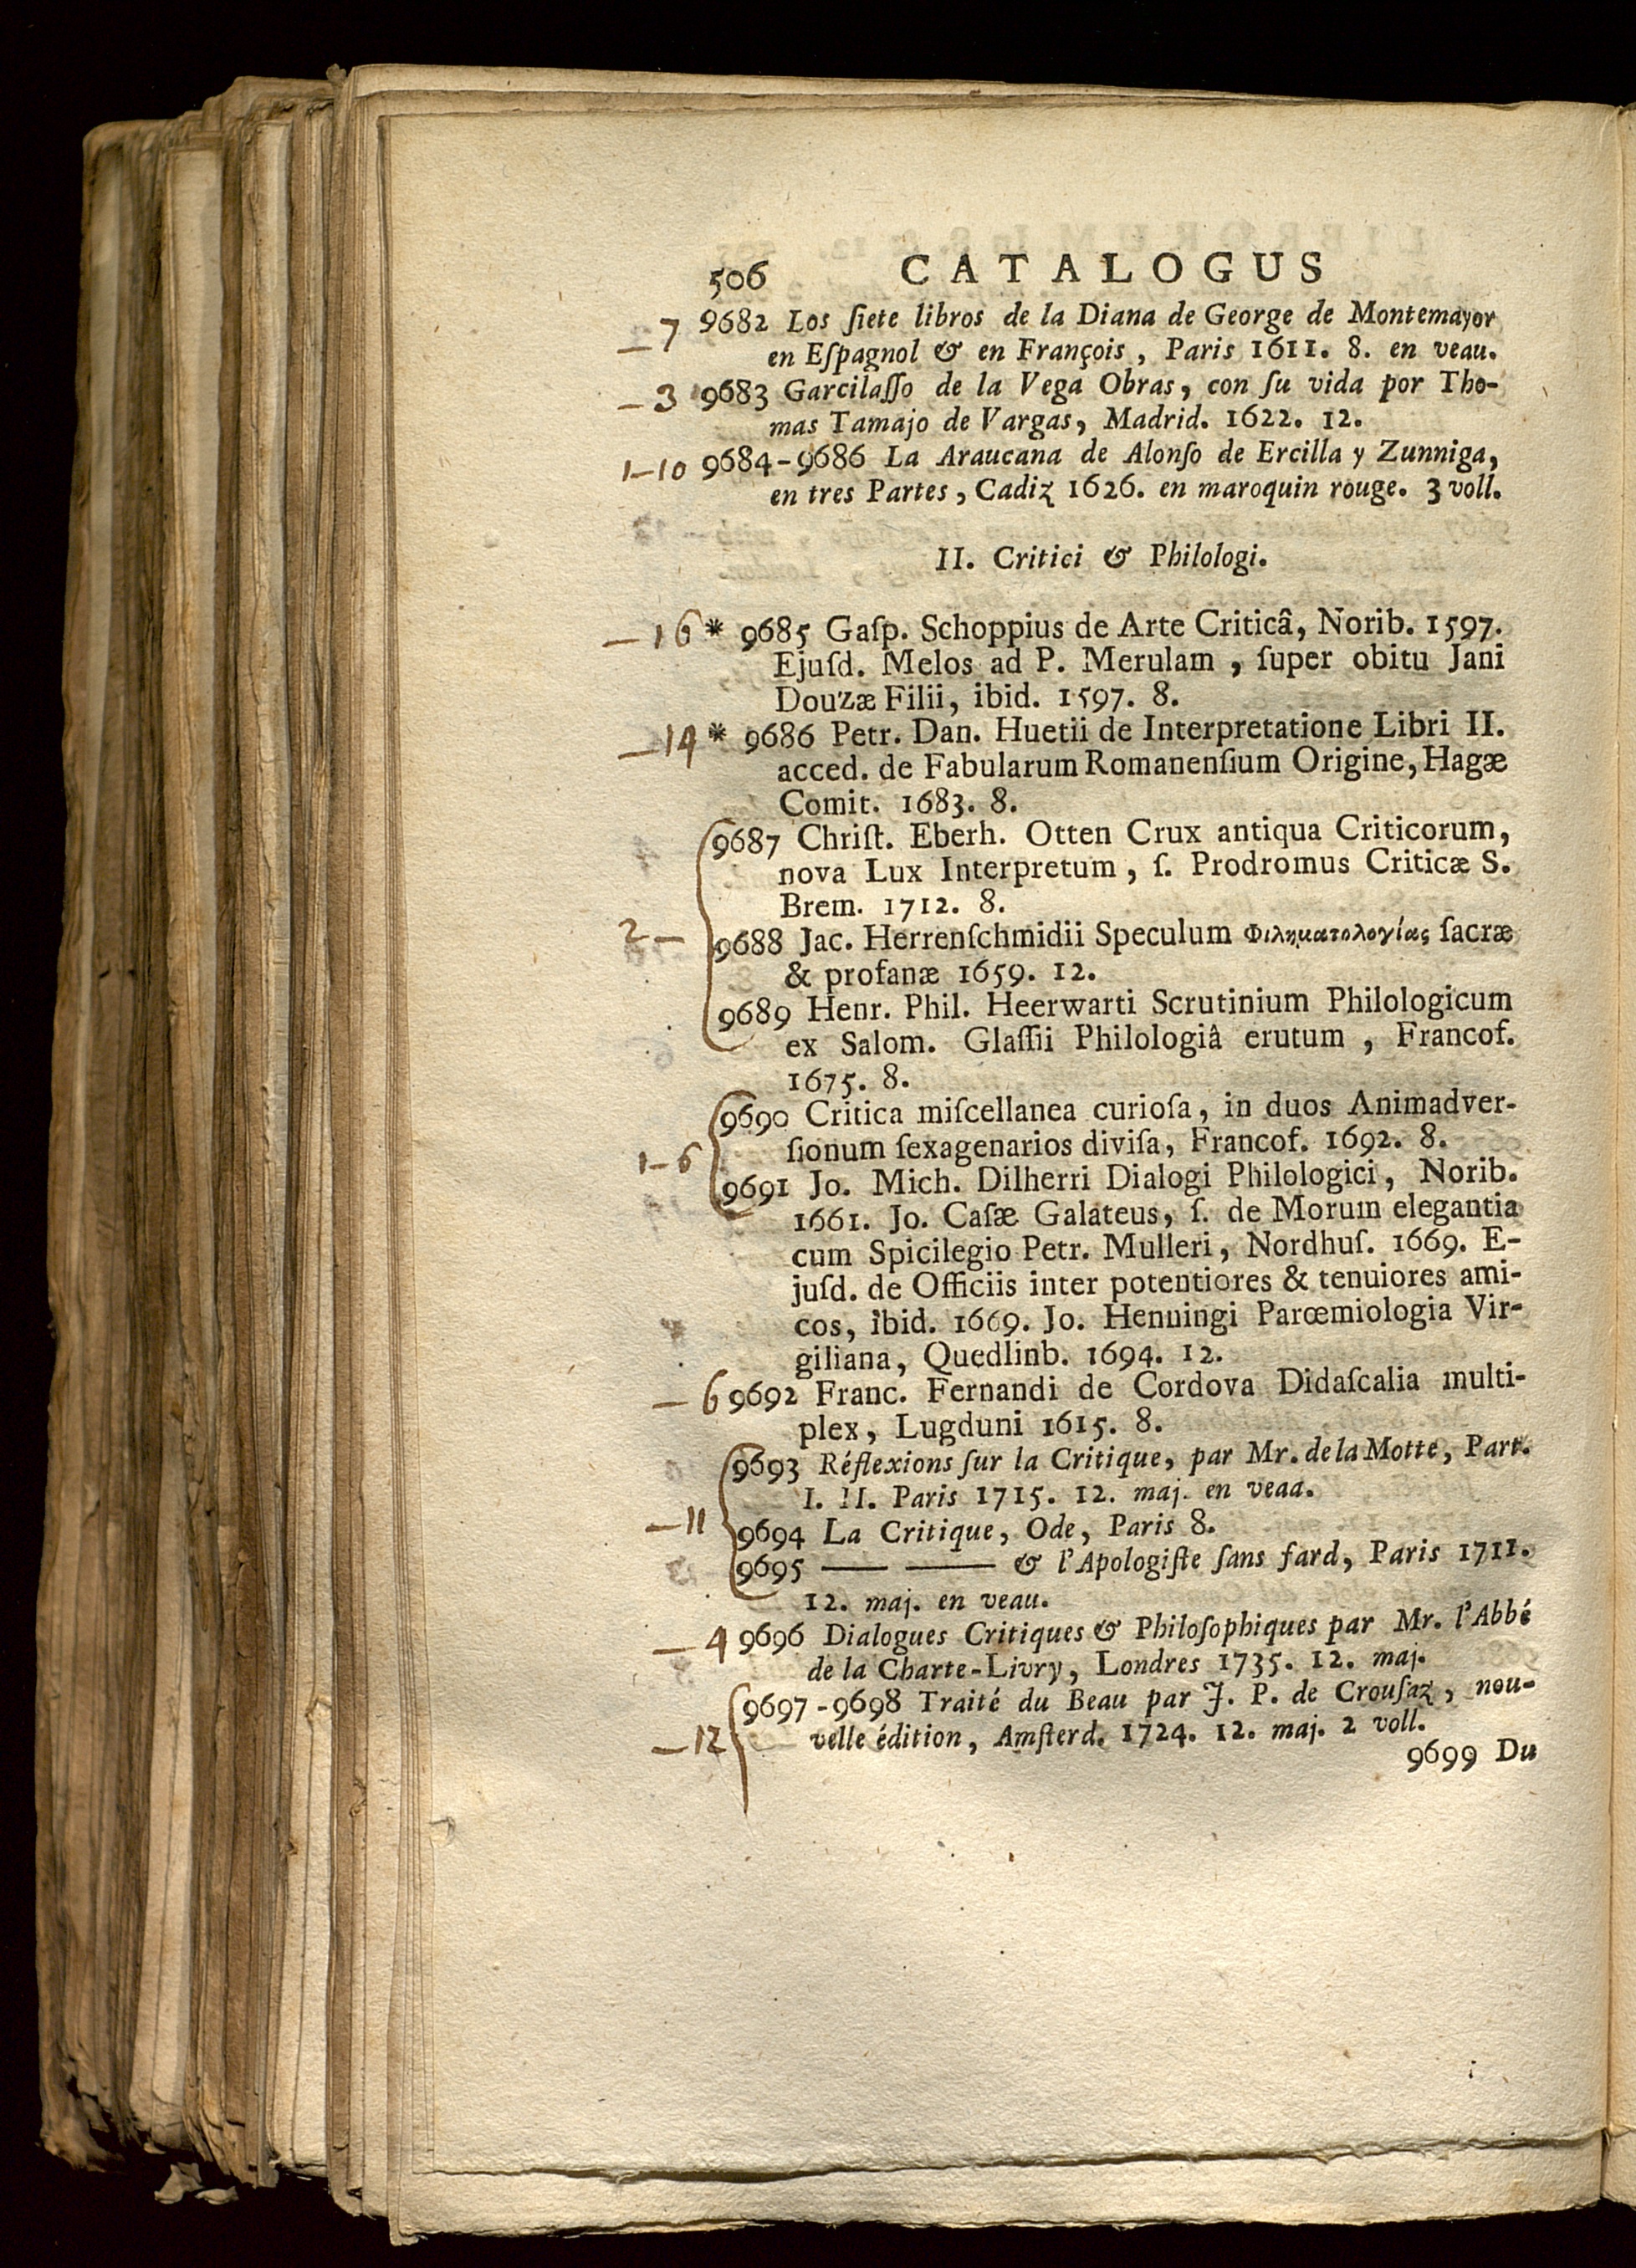 506 CATALOGUS
—7 9682 Los ſiete libros de la Diana de George de Montemayor
en Eſpagnol & en François, Paris 1611. 8. en veau.
—3 9683 Garcilaſſo de la Vega Obras, con ſu vida por Tho-
mas Tamajo de Vargas, Madrid. 1622. 12.
1—10 9684-9686 La Araucana de Alonſo de Ercilla y Zunniga,
en tres Partes, Cadiz 1626. en maroquin rouge. 3 voll.
II. Critici & Philologi.
—16 * 9685 Gaſp. Schoppius de Arte Criticâ, Norib. 1597.
Ejuſd. Melos ad P. Merulam, ſuper obitu Jani
Douzæ Filii, ibid. 1597. 8.
—14 * 9686 Petr. Dan. Huetii de Interpretatione Libri II.
acced. de Fabularum Romanenſium Origine, Hagæ
Comit. 1683. 8.
9687 Chriſt. Eberh. Otten Crux antiqua Criticorum,
nova Lux Interpretum, ſ. Prodromus Criticæ S.
Brem. 1712. 8.
2— 9688 Jac. Herrenſchmidii Speculum Φιληματολογίας ſacræ
& profanæ 1659. 12.
9689 Henr. Phil. Heerwarti Scrutinium Philologicum
ex Salom. Glaſſii Philologiâ erutum, Francof.
1675. 8.
9690 Critica miſcellanea curioſa, in duos Animadver-
ſionum ſexagenarios diviſa, Francof. 1692. 8.
1—6
9691 Jo. Mich. Dilherri Dialogi Philologici, Norib.
1661. Jo. Caſæ Galateus, ſ. de Morum elegantia
cum Spicilegio Petr. Mulleri, Nordhuſ. 1669. E-
juſd. de Officiis inter potentiores & tenuiores ami-
cos, ibid. 1669. Jo. Henningi Parœmiologia Vir-
giliana, Quedlinb. 1694. 12.
—6 9692 Franc. Fernandi de Cordova Didaſcalia multi-
plex, Lugduni 1615. 8.
9693 Réflexions ſur la Critique, par Mr. de la Motte, Part.
I. II. Paris 1715. 12. maj. en veaa.
—11 9694 La Critique, Ode, Paris 8.
9695 —— —— & l'Apologiſte ſans fard, Paris 1711.
12. maj. en veau.
—4 9696 Dialogues Critiques & Philoſophiques par Mr. l'Abbé
de la Charte-Livry, Londres 1735. 12. maj.
9697-9698 Traité du Beau par J. P. de Crouſaz, nou-
—12 velle édition, Amſterd. 1724. 12. maj. 2 voll.
9699 Du